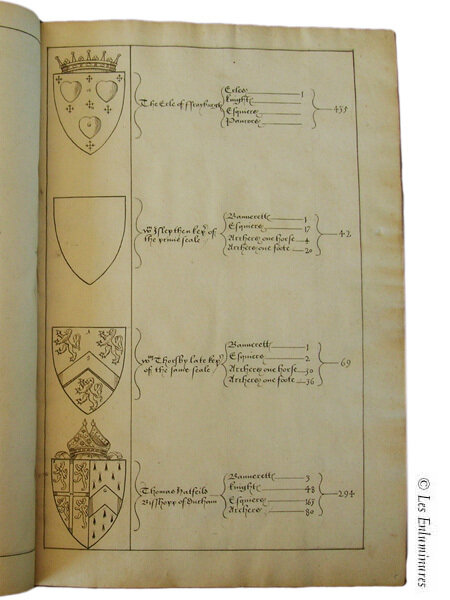 The Erle of
Erles 1
Knight
Esquiers
435
Wm Isley then kep of
the privie seale
Bannerett 1
Esquiers 17
Archers one horse 4
Archers one foote 20
42
Wm Thorsby late kep
of the same seale
Bannerett 1
Esquiers 2
Archers one horse 30
Archers one foote 36
69
Thomas Hatfeild
Bisshopp of Durham
Bannerett 3
Knight 48
Esquiers
Archers 80
294
© Les Enluminures